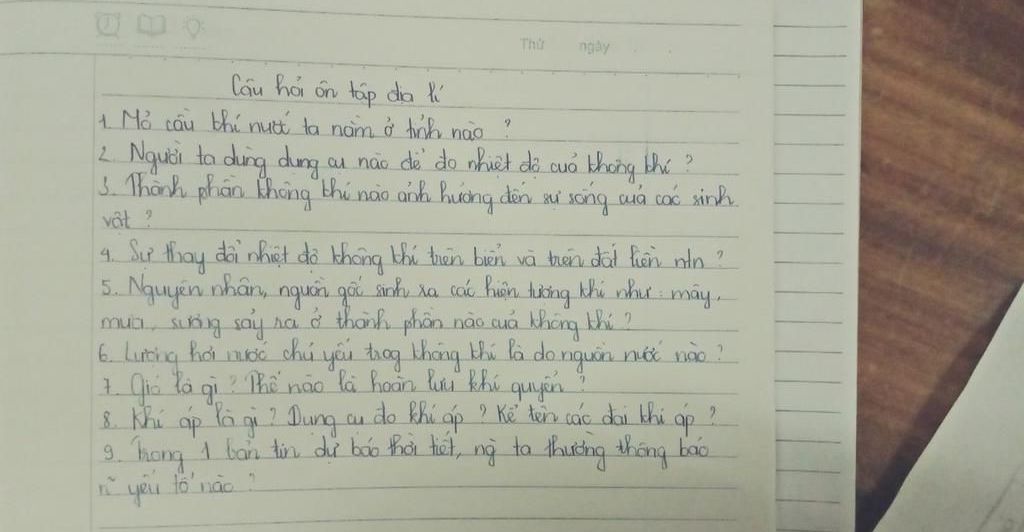 Thứ ngày
Câu hỏi ôn tập địa lí
1. Mỏ dầu khí nước ta nằm ở tỉnh nào ?
2. Người ta dùng dụng cụ nào để đo nhiệt độ của không khí ?
3. Thành phần không khí nào ảnh hưởng đến sự sống của các sinh
vật ?
4. Sự thay đổi nhiệt độ không khí trên biển và trên đất liền ntn ?
5. Nguyên nhân, nguồn gốc sinh ra các hiện tượng khí như : mây,
mưa, sương sảy ra ở thành phần nào của không khí ?
6. Lượng hơi nước chủ yếu trog không khí là do nguồn nước nào ?
7. Gió là gì ? Thế nào là hoàn lưu khí quyển ?
8. Khí áp là gì ? Dụng cụ đo khí áp ? Kể tên các đai khí áp ?
9. Trong 1 bản tin dự báo thời tiết, ng ta thường thông báo
n~ yếu tố nào ?